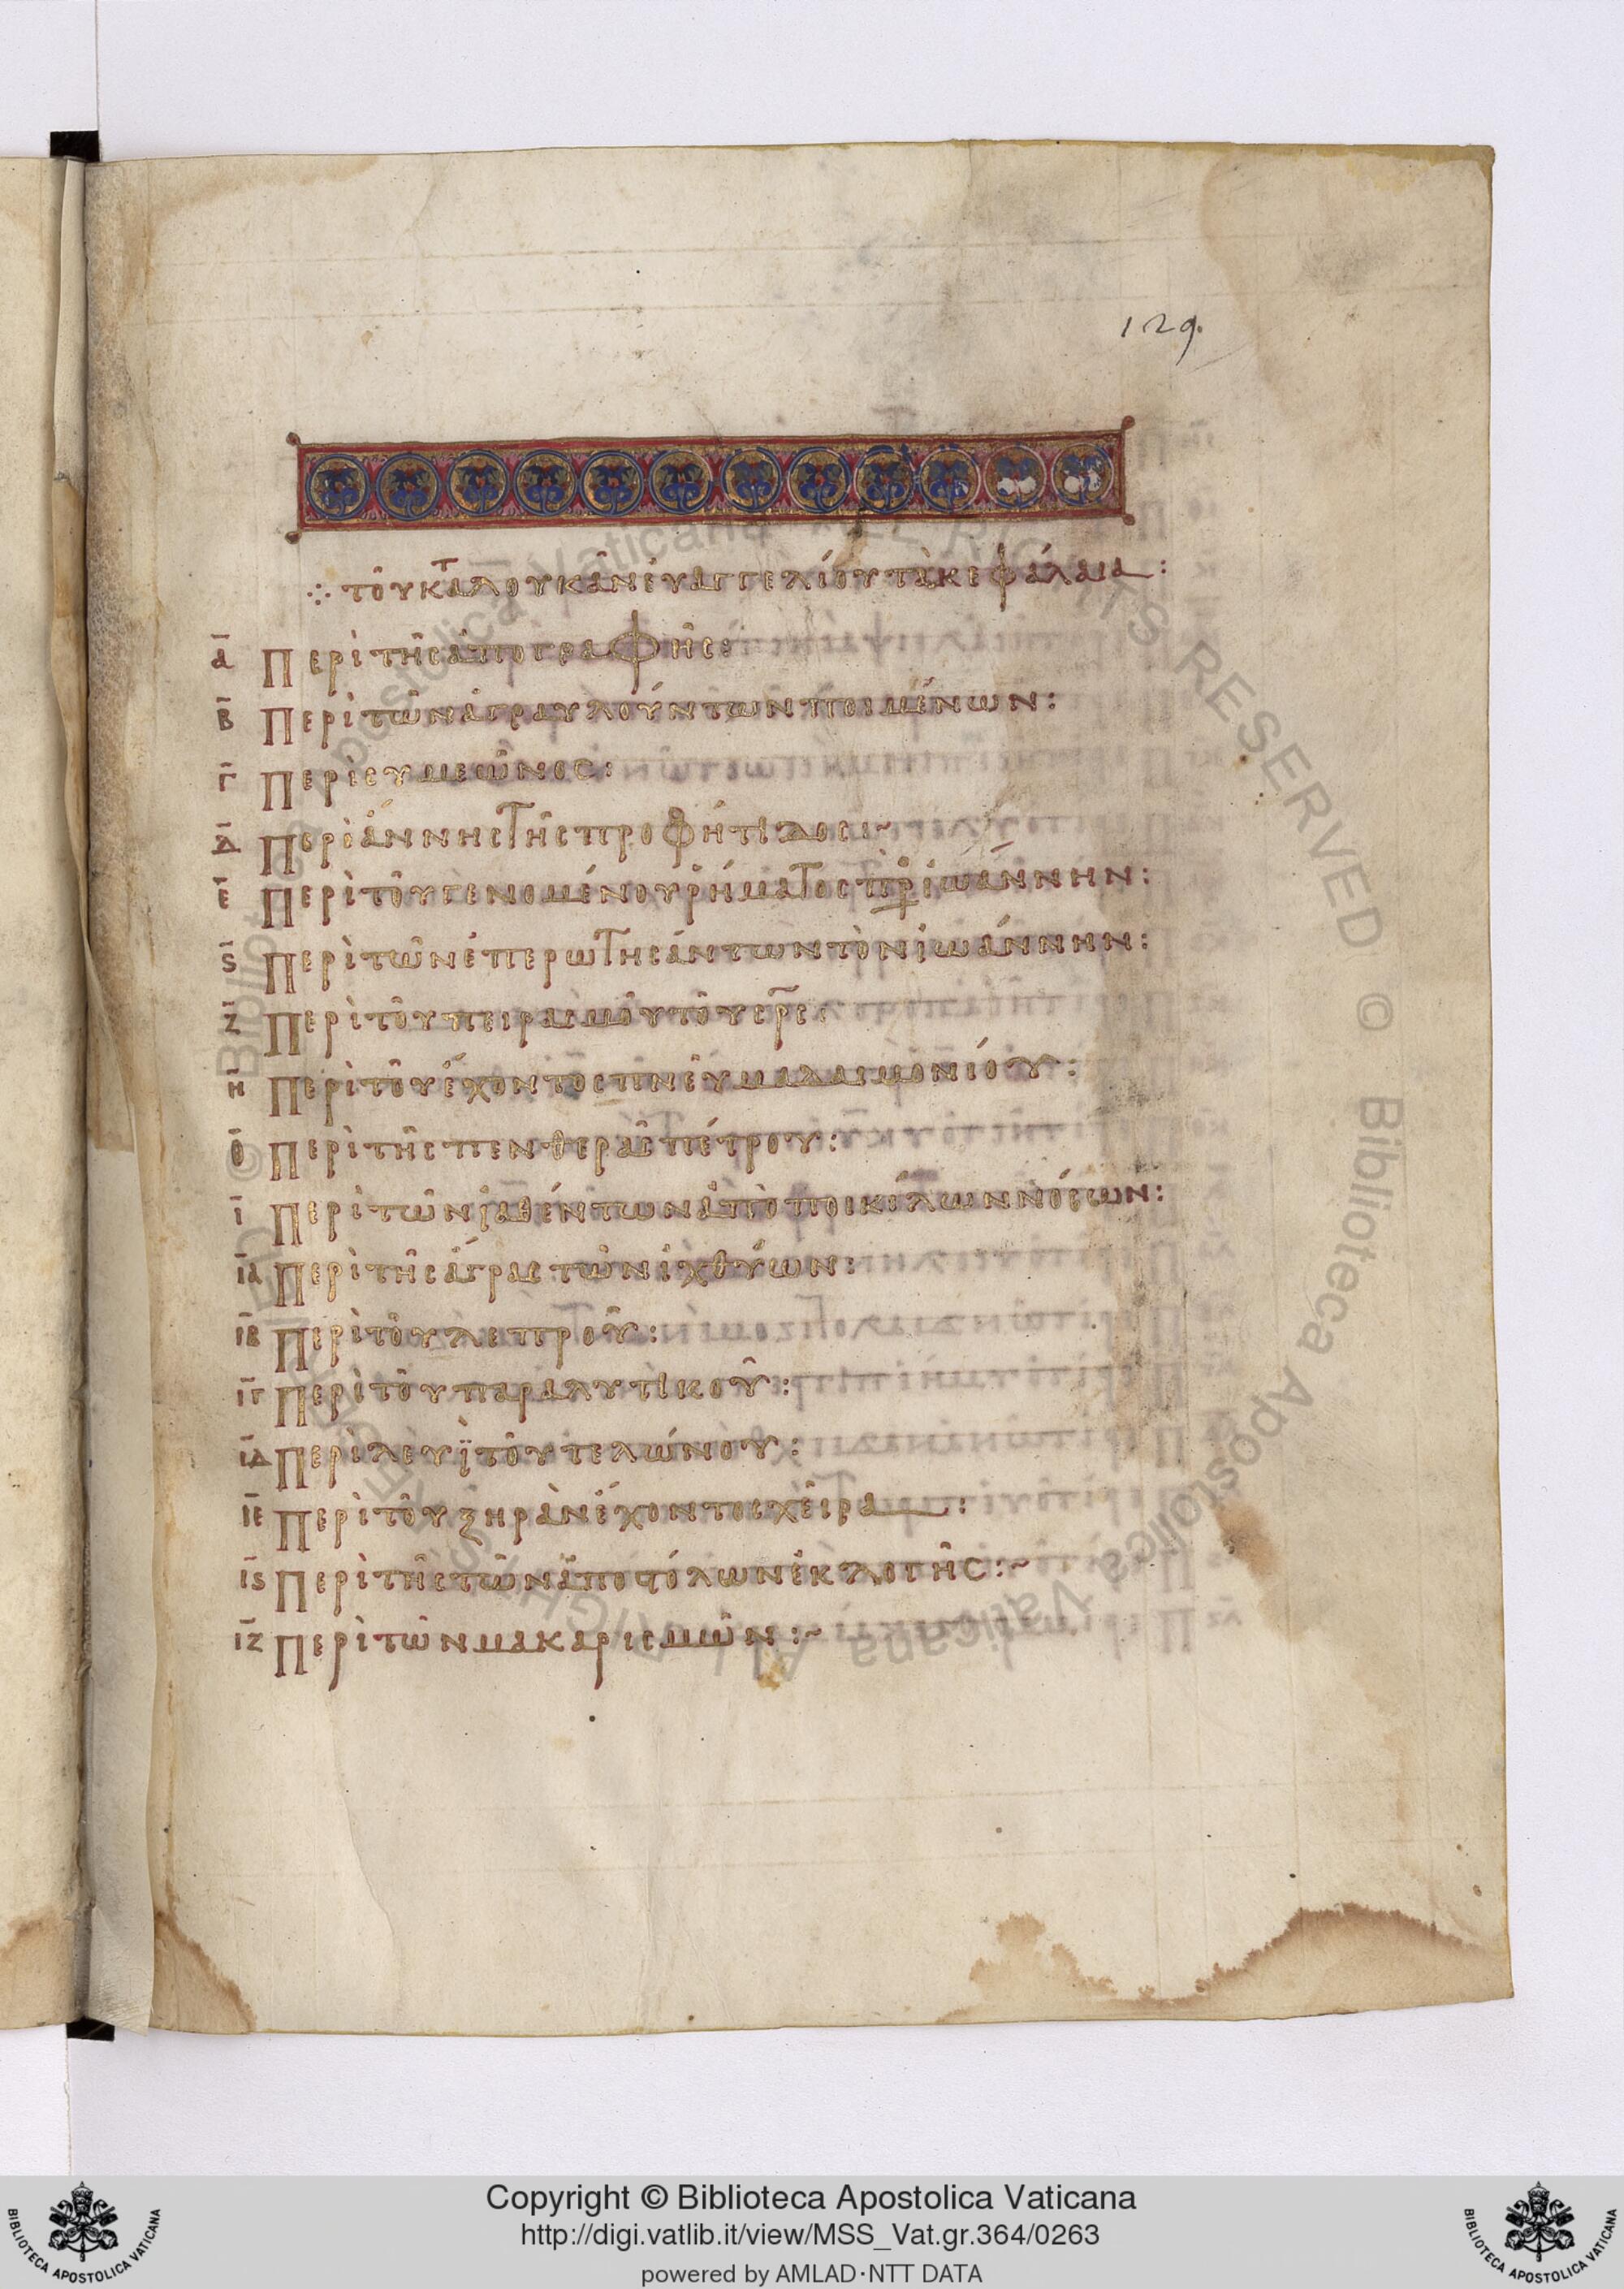 129.
⁘ τοῦ κατ̅ὰ λουκᾶν ἐυαγγελίου τὰ κεφάλαια:
α̅ Περὶ τῆς ἀπογραφῆς:
β̅ Περὶ τῶν ἀγραυλούντων ποιμένων:
γ̅ Περὶ συμεῶνος:
δ̅ Περὶ ἄννης τῆς προφήτιδος:~
ε̅ Περὶ τοῦ γενομένου ῥήματος πρ̅ ἰωάννην:
ϛ̅ Περὶ τῶν ἐπερωτησάντων τὸν ἰωάννην:
ζ̅ Περὶ τοῦ πειρασμοῦ τοῦ σρ̅ς:
η̅ Περὶ τοῦ ἔχοντος πνεῦμα δαιμονίου:
θ̅ Περὶ τῆς πενθερᾶς πέτρου:
ι̅ Περὶ τῶν ἰαθέντων ἀπὸ ποικίλων νόσων:
ια̅ Περὶ τῆς ἄγρας τῶν ἰχθύων:
ιβ̅ Περὶ τοῦ λεπροῦ:
ιγ̅ Περὶ τοῦ παραλυτικοῦ:
ιδ̅ Περὶ λευϊ τοῦ τελώνου:
ιε̅ Περὶ τοῦ ξηρὰν ἔχοντος χεῖρα:
ιϛ̅ Περὶ τῆς τῶν ἀποστόλων ἐκλογῆς:~
ιζ̅ Περὶ τῶν μακαρισμῶν:~
© Biblioteca Apostolica Vaticana ALL RIGHTS RESERVED © Biblioteca Apostolica Vaticana ALL RIGHTS RESERVED
BIBLIOTECA APOSTOLICA VATICANA
Copyright © Biblioteca Apostolica Vaticana
http://digi.vatlib.it/view/MSS_Vat.gr.364/0263
powered by AMLAD·NTT DATA
BIBLIOTECA APOSTOLICA VATICANA